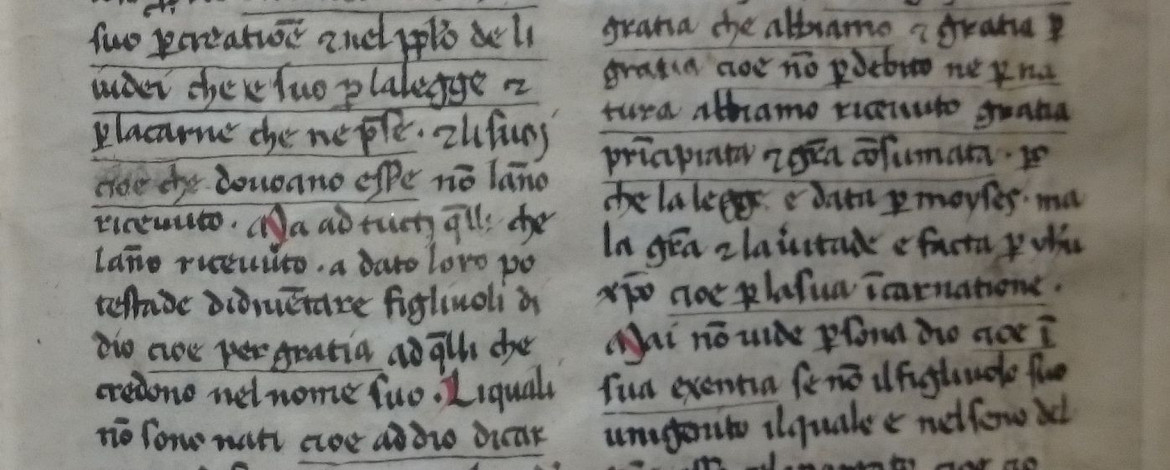 suo ꝑcreatiōe ⁊ nel ppło de li
iudei che e suo ꝑ la legge ⁊
ꝑ la carne che ne p̄se · ⁊ li suoj
cioe che douoano esse nō lāno
riceuuto · Ma ad tuctj q̄lli che
lāno riceuuto · a dato loro po
testade didiuētare figliuoli di
dio cioe per gratia ad q̄lli che
credono nel nome suo · Li quali
nō sono nati cioe ad dio dicar
gratia che abbiamo ⁊ gratia ꝑ
gratia cioe nō ꝑ debito ne ꝑ na
tura abbiamo riceuuto gratia
prīcipiata ⁊ gr̄a cōsumata · ꝑo
che la legge e data ꝑ moyses · ma
la gr̄a ⁊ la uitade e facta ꝑ yhu
xp̄o cioe ꝑ la sua īcarnatione ·
Mai nō uide ꝑsona dio cioe ī
sua exentia se nō il figliuolo suo
unigenito il quale e nel seno del